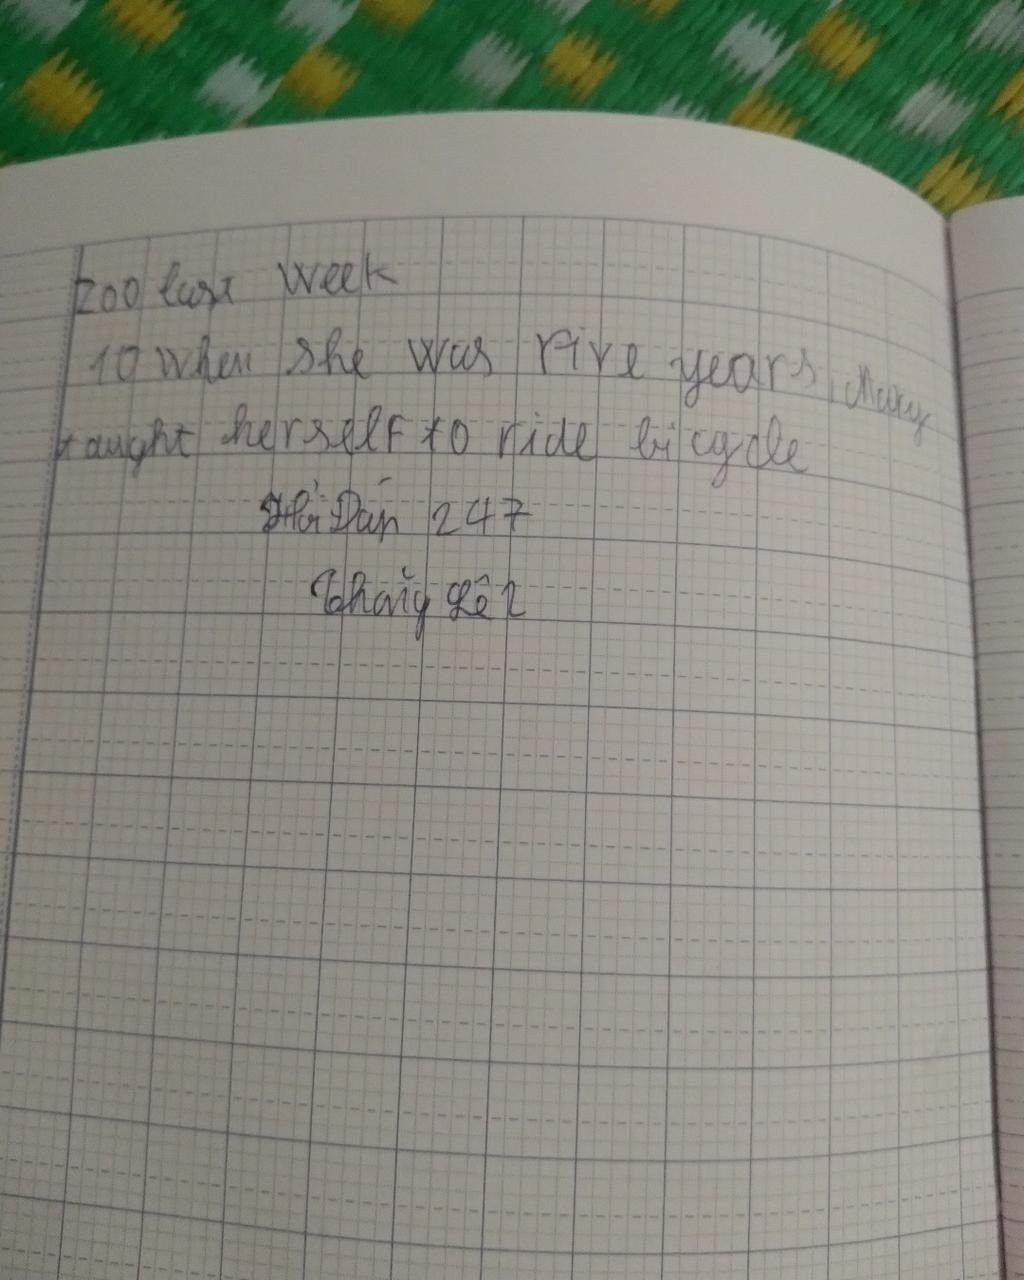 zoo last week
10 When she was five years, Mary
taught herself to ride bicycle
Hỏi Đáp 247